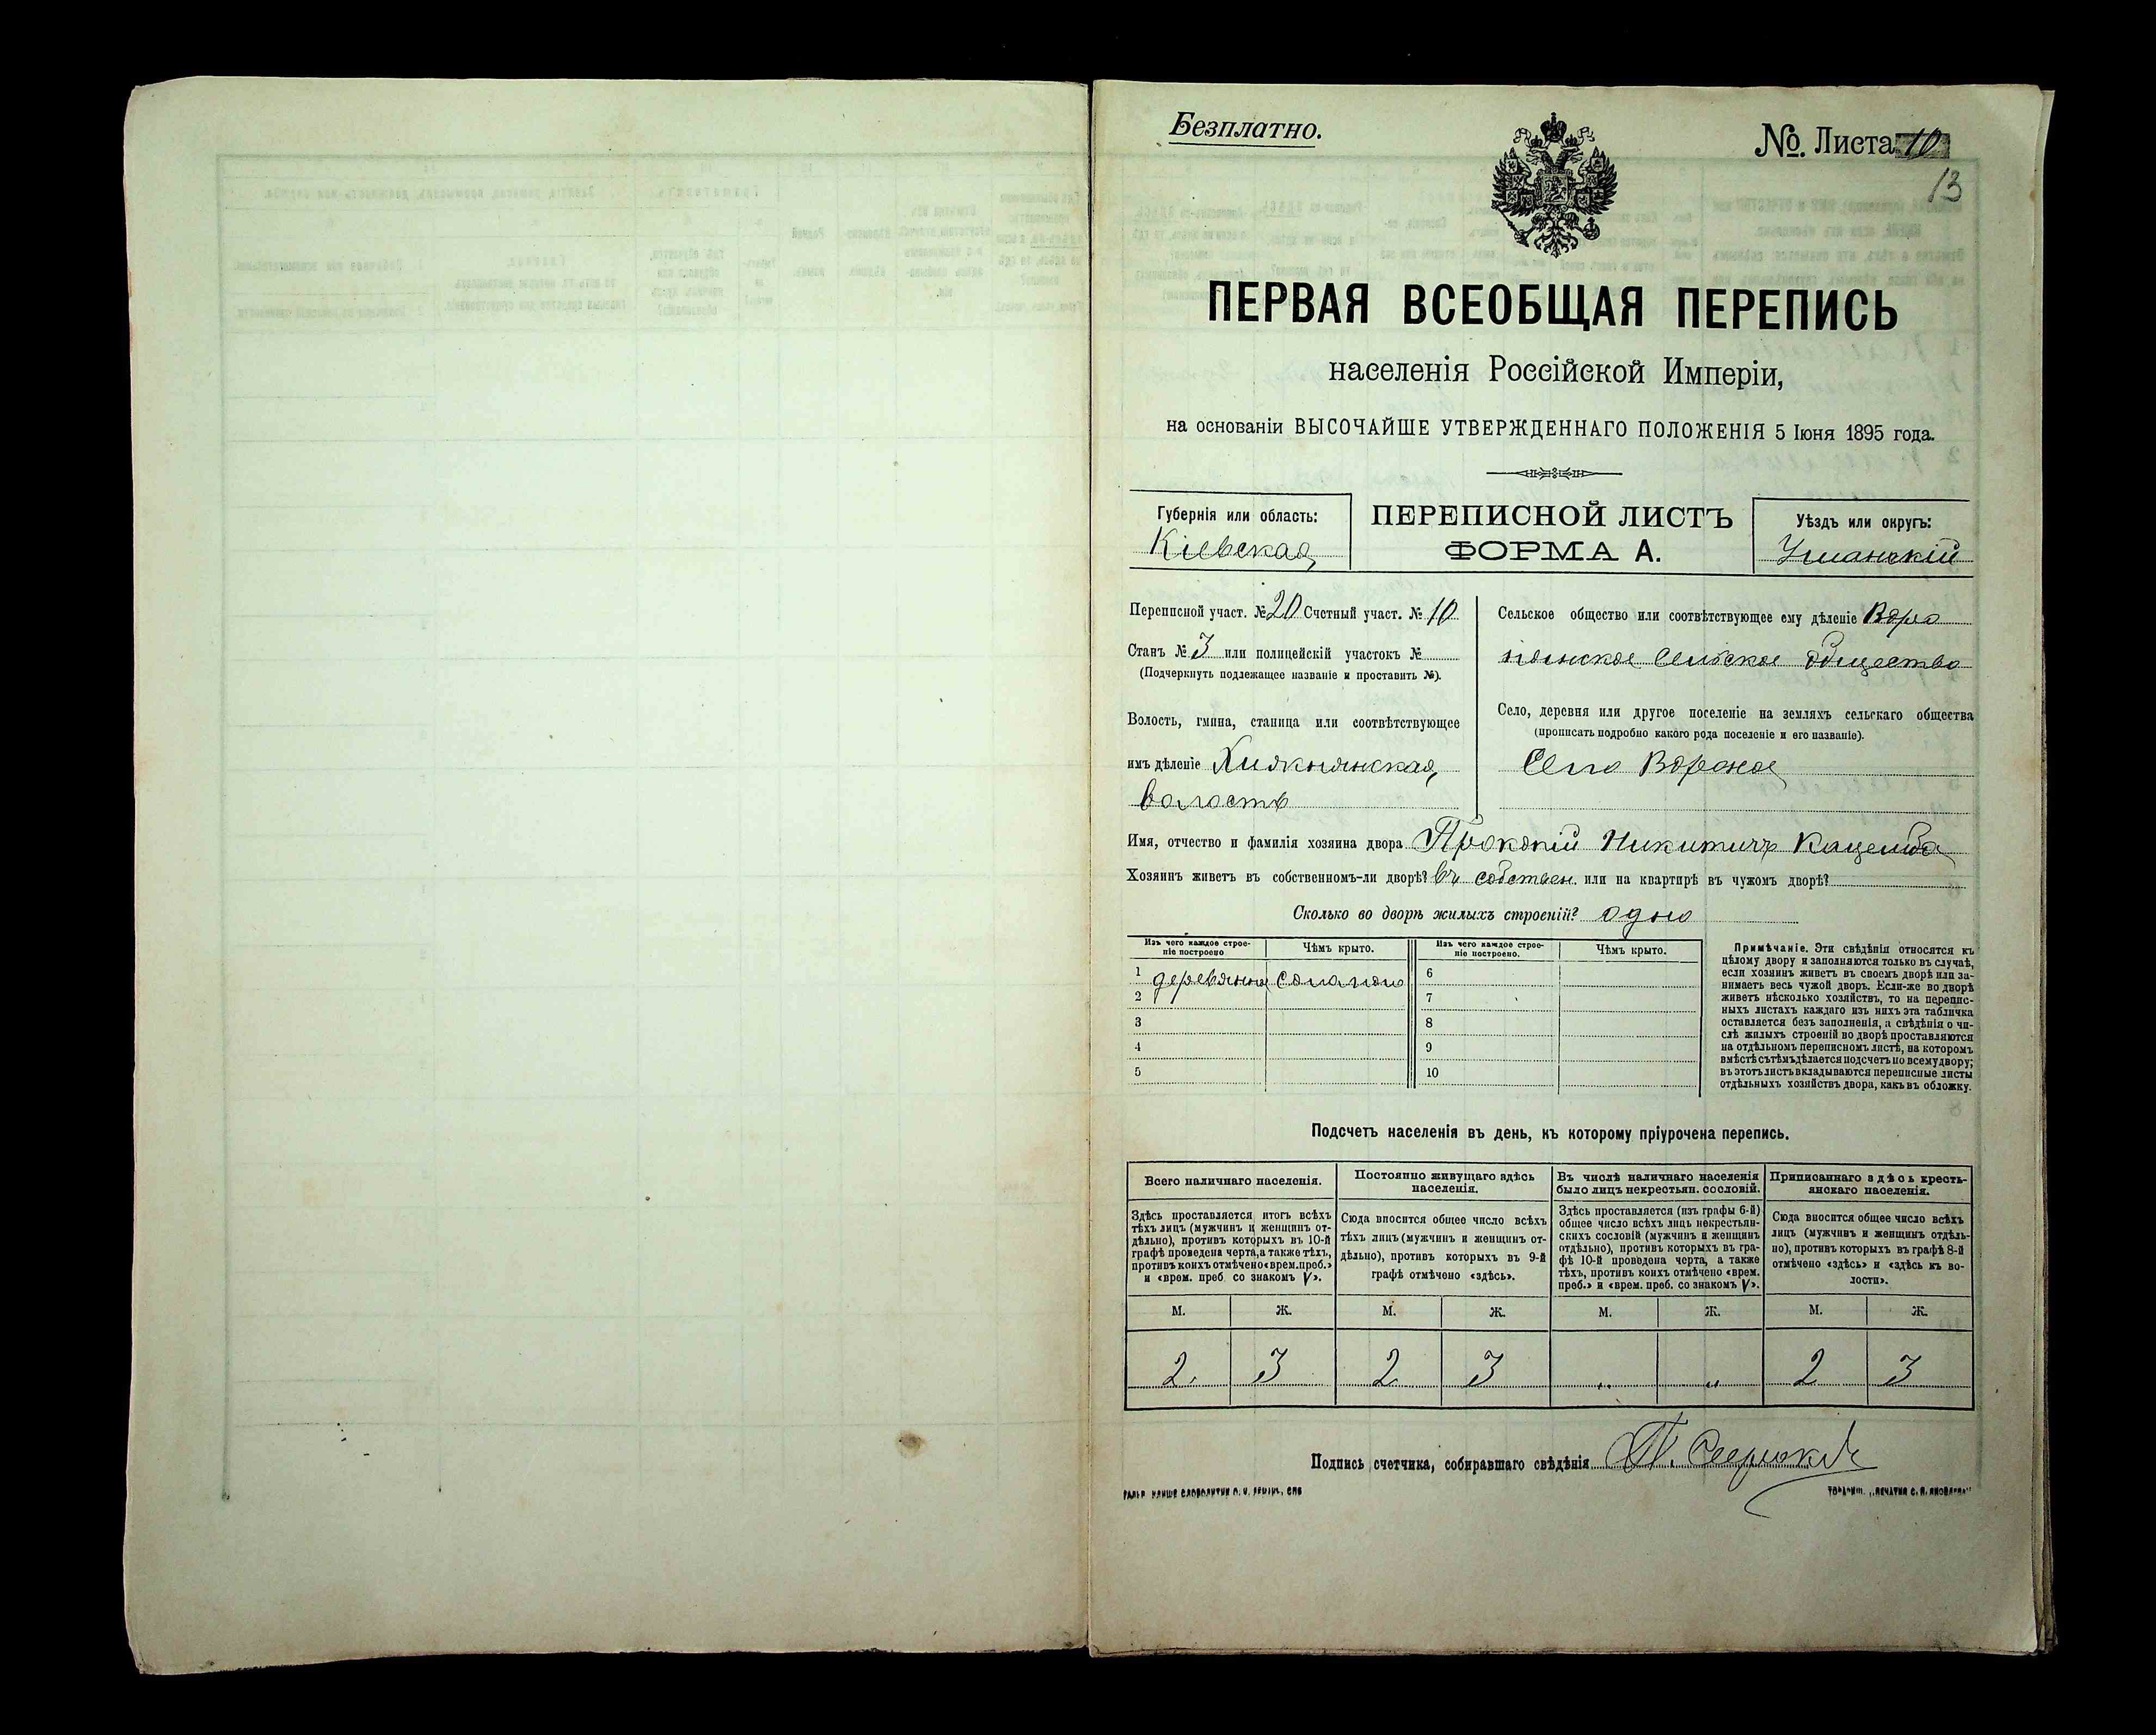 Безплатно.
№. Листа 10
13
ПЕРВАЯ ВСЕОБЩАЯ ПЕРЕПИСЬ
населенія Россійской Имперіи,
на основаніи ВЫСОЧАЙШЕ УТВЕРЖДЕННАГО ПОЛОЖЕНІЯ 5 Іюня 1895 года.
Губернія или область:
Кіевская
ПЕРЕПИСНОЙ ЛИСТЪ
ФОРМА А.
Уѣздъ или округъ:
Уманскій
Переписной участ. № 20 Счетный участ. № 10
Станъ № 3 или полицейскій участокъ №
(Подчеркнуть подлежащее названіе и проставить №).
Волость, гмина, станица или соотвѣтствующее
имъ дѣленіе
волость
Сельское общество или соотвѣтствующее ему дѣленіе Воро
нянское Сельское Общество
Село, деревня или другое поселеніе на земляхъ сельскаго общества
(прописать подробно какого рода поселеніе и его названіе).
Село Вороное
Имя, отчество и фамилія хозяина двора Прокопій Никитичъ
Хозяинъ живетъ въ собственномъ-ли дворѣ? въ собствен. или на квартирѣ въ чужомъ дворѣ?
Сколько во дворѣ жилыхъ строеній? одно
Изъ чего каждое строе-
ніе построено
Чѣмъ крыто.
Изъ чего каждое строе-
ніе построено.
Чѣмъ крыто.
1 деревянное соломою
2
3
4
5
6
7
8
9
10
Примѣчаніе. Эти свѣдѣнія относятся къ
цѣлому двору и заполняются только въ случаѣ,
если хозяинъ живетъ въ своемъ дворѣ или за-
нимаетъ весь чужой дворъ. Если-же во дворѣ
живетъ нѣсколько хозяйствъ, то на перепис-
ныхъ листахъ каждаго изъ нихъ эта табличка
оставляется безъ заполненія, а свѣдѣнія о чи-
слѣ жилыхъ строеній во дворѣ проставляются
на отдѣльномъ переписномъ листѣ, на которомъ
вмѣстѣ съ тѣмъ дѣлается подсчетъ по всему двору;
въ этотъ листъ вкладываются переписные листы
отдѣльныхъ хозяйствъ двора, какъ въ обложку.
Подсчетъ населенія въ день, къ которому пріурочена перепись.
Всего наличнаго населенія.
Здѣсь проставляется итогъ всѣхъ
тѣхъ лицъ (мужчинъ и женщинъ от-
дѣльно), противъ которыхъ въ 10-й
графѣ проведена черта, а также тѣхъ,
противъ коихъ отмѣчено «врем. преб.»
и «врем. преб. со знакомъ V».
Постоянно живущаго здѣсь
населенія.
Сюда вносится общее число всѣхъ
тѣхъ лицъ (мужчинъ и женщинъ от-
дѣльно), противъ которыхъ въ 9-й
графѣ отмѣчено «здѣсь».
Въ числѣ наличнаго населенія
было лицъ некрестьян. сословій.
Здѣсь проставляется (изъ графы 6-й)
общее число всѣхъ лицъ некрестьян-
скихъ сословій (мужчинъ и женщинъ
отдѣльно), противъ которыхъ въ гра-
фѣ 10-й проведена черта, а также
тѣхъ, противъ коихъ отмѣчено «врем.
преб.» и «врем. преб. со знакомъ V».
Приписаннаго здѣсь кресть-
янскаго населенія.
Сюда вносится общее число всѣхъ
лицъ (мужчинъ и женщинъ отдѣль-
но), противъ которыхъ въ графѣ 8-й
отмѣчено «здѣсь» и «здѣсь къ во-
лости».
М. Ж. М. Ж. М. Ж. М. Ж.
2 3 2 3 „ „ 2 3
Подпись счетчика, собиравшаго свѣдѣнія